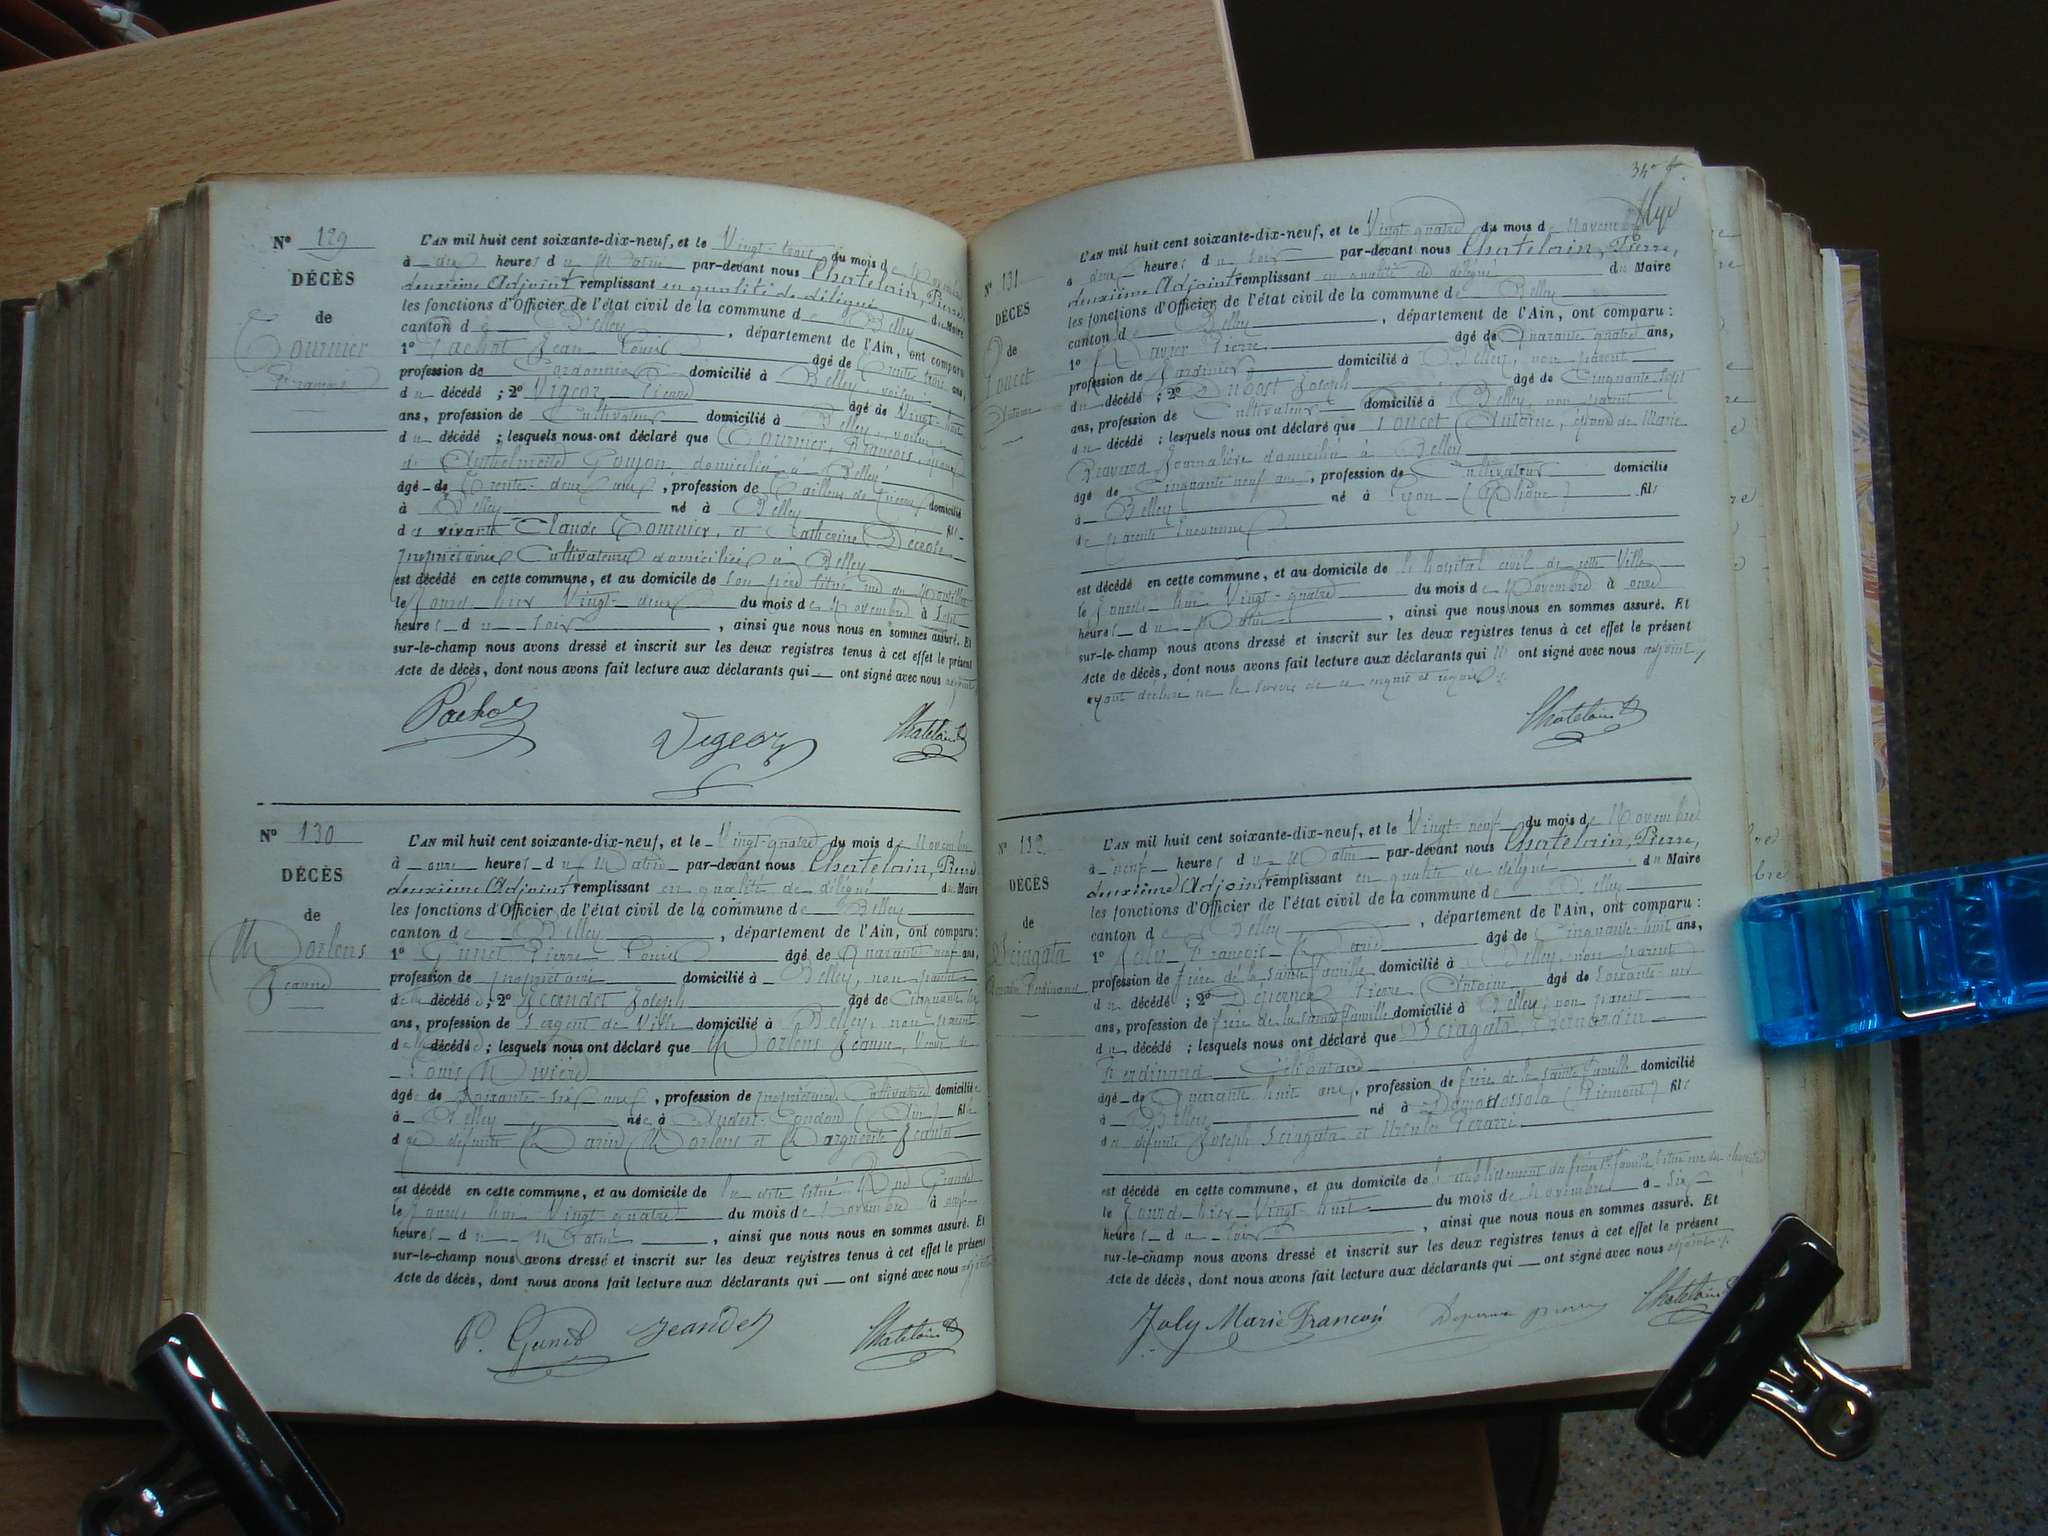 N° 129
DÉCÈS
de
Tournier
François
L'AN mil huit cent soixante-dix-neuf, et le Vingt-trois du mois de Novembre
à dix heures du Matin par-devant nous Chatelain, Pierre,
deuxième Adjoint remplissant en qualité de délégué du Maire
les fonctions d'Officier de l'état civil de la commune de Belley
canton de Belley, département de l'Ain, ont comparu:
1° Pachot Jean Louis âgé de trente trois ans,
profession de Cordonnier domicilié à Belley, voisin
du décédé; 2° Vigeor âgé de Vingt-huit
ans, profession de Cultivateur domicilié à Belley, voisin
du décédé; lesquels nous ont déclaré que Tournier, François, époux
de Anthelmette Goujon, domiciliée à Belley
âgé de Trente-deux ans, profession de Tailleur de pierres domicilié
à Belley né à Belley fils
de vivants Claude Tournier, et Catherine
propriétaires Cultivateurs domiciliés à Belley
est décédé en cette commune, et au domicile de son père situé rue du
le Jourd hier Vingt-deux du mois de Novembre à Sept
heures du soir, ainsi que nous nous en sommes assuré. Et
sur-le-champ nous avons dressé et inscrit sur les deux registres tenus à cet effet le présent
Acte de décès, dont nous avons fait lecture aux déclarants qui ont signé avec nous adjoint
Pachot
Vigeor
Chatelain
N° 130
DÉCÈS
de
Morlens
Jeanne
L'AN mil huit cent soixante-dix-neuf, et le Vingt-quatre du mois de Novembre
à onze heures du Matin par-devant nous Chatelain, Pierre
deuxième Adjoint remplissant en qualité de délégué du Maire
les fonctions d'Officier de l'état civil de la commune de Belley
canton de Belley, département de l'Ain, ont comparu:
1° Gunet Pierre Louis âgé de Quarante-neuf ans,
profession de propriétaire domicilié à Belley, non parent
de la décédée; 2° Jeandet Joseph âgé de Cinquante six
ans, profession de Sergent de Ville domicilié à Belley, non parent
de la décédée; lesquels nous ont déclaré que Morlens Jeanne, Veuve de
Louis Rivière
âgée de Soixante-six ans, profession de propriétaire Cultivatrice domiciliée
à Belley née à Andert-Condon (Ain) fille
de défunts Morlens et Marguerite
est décédée en cette commune, et au domicile de Rue Grande
le Jourd hui Vingt quatre du mois de Novembre à
heures du Matin, ainsi que nous nous en sommes assuré. Et
sur-le-champ nous avons dressé et inscrit sur les deux registres tenus à cet effet le présent
Acte de décès, dont nous avons fait lecture aux déclarants qui ont signé avec nous adjoint
P. Gunet
Jeandet
Chatelain
N° 131
DÉCÈS
de
Poncet
Antoine
L'AN mil huit cent soixante-dix-neuf, et le Vingt-quatre du mois de Novembre
à deux heures du soir par-devant nous Chatelain, Pierre,
deuxième Adjoint remplissant en qualité de délégué du Maire
les fonctions d'Officier de l'état civil de la commune de Belley
canton de Belley, département de l'Ain, ont comparu:
1° Pierre âgé de Quarante quatre ans,
profession de Jardinier domicilié à Belley, non parent
du décédé; 2° Dubost Joseph âgé de Cinquante sept
ans, profession de Cultivateur domicilié à Belley, non parent
du décédé; lesquels nous ont déclaré que Poncet Antoine, époux de Marie
Bravard Journalière domiciliée à Belley
âgé de Cinquante neuf ans, profession de Cultivateur domicilié
à Belley né à Lyon (Rhône) fils
de parents Inconnus
est décédé en cette commune, et au domicile de l'hospital civil de cette Ville
le Jourd hui Vingt-quatre du mois de Novembre à onze
heures du Matin, ainsi que nous nous en sommes assuré. Et
sur-le-champ nous avons dressé et inscrit sur les deux registres tenus à cet effet le présent
Acte de décès, dont nous avons fait lecture aux déclarants qui n' ont signé avec nous adjoint,
ayant déclaré ne le savoir de ce enquis et requis
Chatelain
N° 132
DÉCÈS
de
Sciagata
Ferdinand
L'AN mil huit cent soixante-dix-neuf, et le Vingt-neuf du mois de Novembre
à neuf heures du Matin par-devant nous Chatelain, Pierre,
deuxième Adjoint remplissant en qualité de délégué du Maire
les fonctions d'Officier de l'état civil de la commune de Belley
canton de Belley, département de l'Ain, ont comparu:
1° Joly François Marie âgé de Cinquante-huit ans,
profession de frère de la sainte famille domicilié à Belley, non parent
du décédé; 2° Pierre Antoine âgé de soixante-un
ans, profession de frère de la sainte famille domicilié à Belley, non parent
du décédé; lesquels nous ont déclaré que Sciagata,
Ferdinand Célibataire
âgé de Quarante huit ans, profession de frère de la sainte famille domicilié
à Belley né à Domodossola (Piémont) fils
de défunts Joseph Sciagata et Ursule
est décédé en cette commune, et au domicile de l'établissement
le Jourd hier Vingt-huit du mois de Novembre à six
heures du soir, ainsi que nous nous en sommes assuré. Et
sur-le-champ nous avons dressé et inscrit sur les deux registres tenus à cet effet le présent
Acte de décès, dont nous avons fait lecture aux déclarants qui ont signé avec nous adjoint.
Joly Marie François
Chatelain